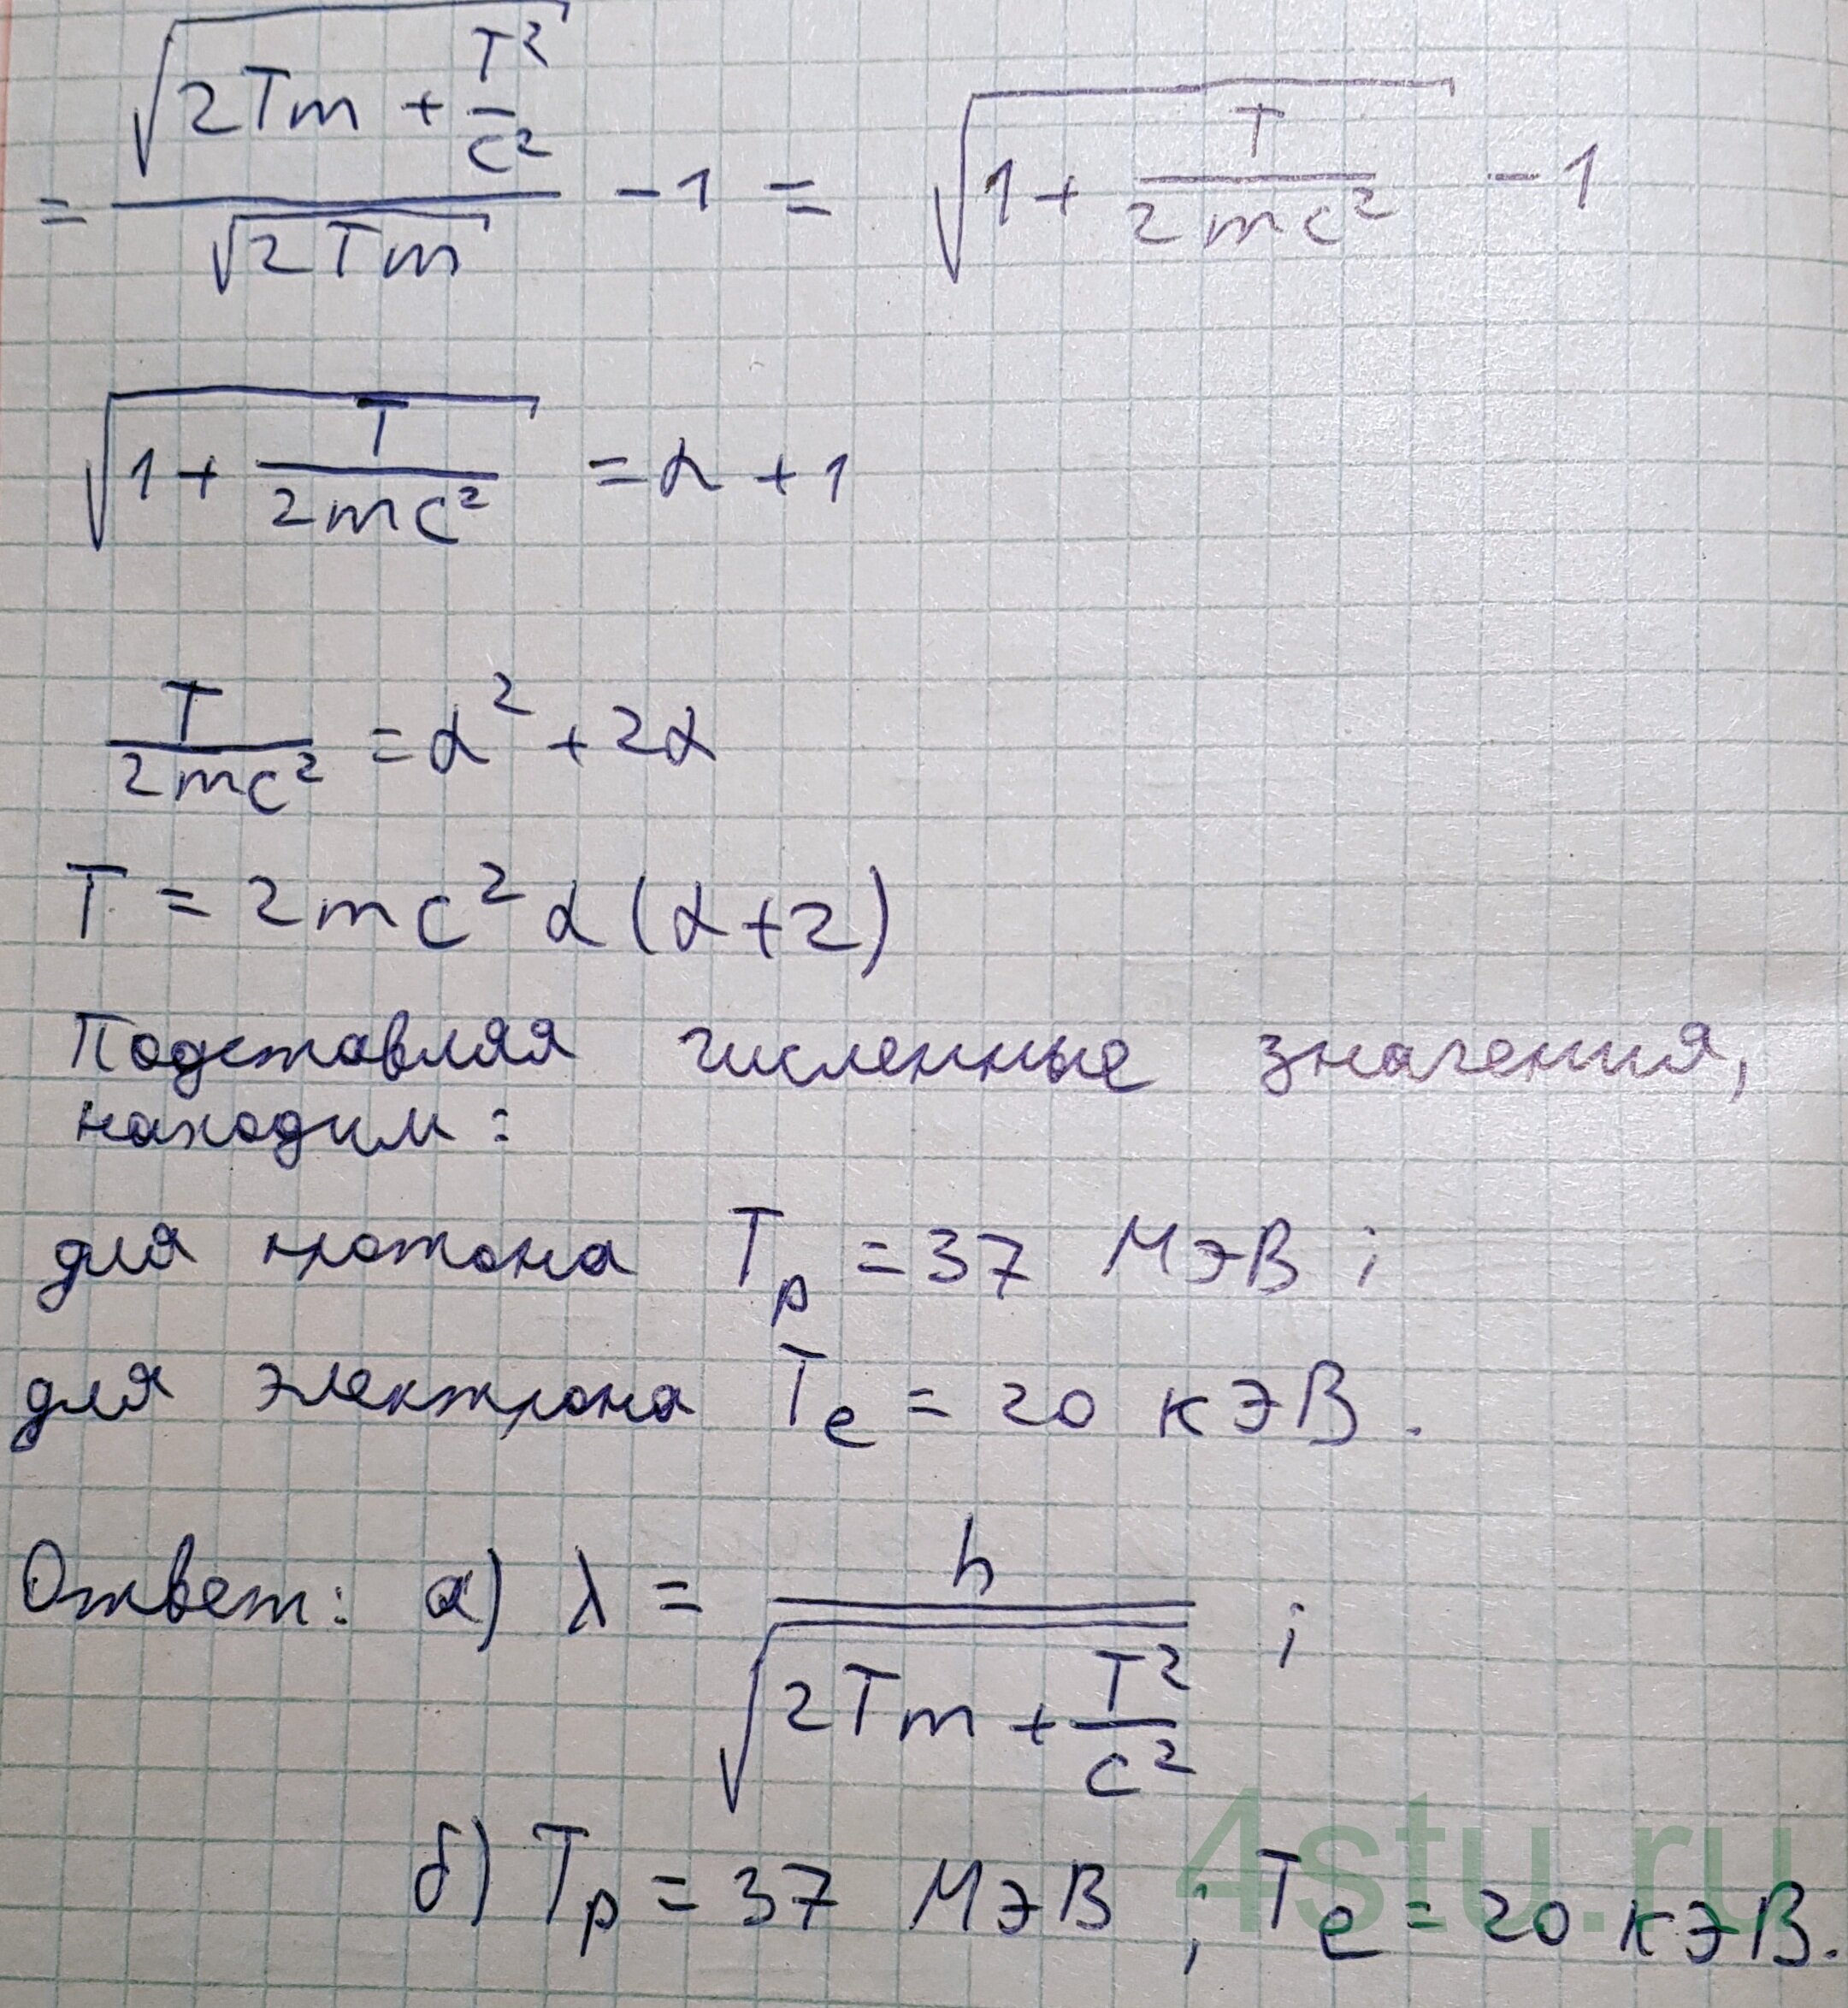 = √(2Tm + T²/c²) / √(2Tm) - 1 = √(1 + T/(2mc²)) - 1
√(1 + T/(2mc²)) = α + 1
T/(2mc²) = α² + 2α
T = 2mc²α(α+2)
Подставляя численные значения,
находим:
для протона Tp = 37 МэВ;
для электрона Te = 20 кэВ.
Ответ: а) λ = h / √(2Tm + T²/c²) ;
б) Tp = 37 МэВ ; Te = 20 кэВ.
4stu.ru